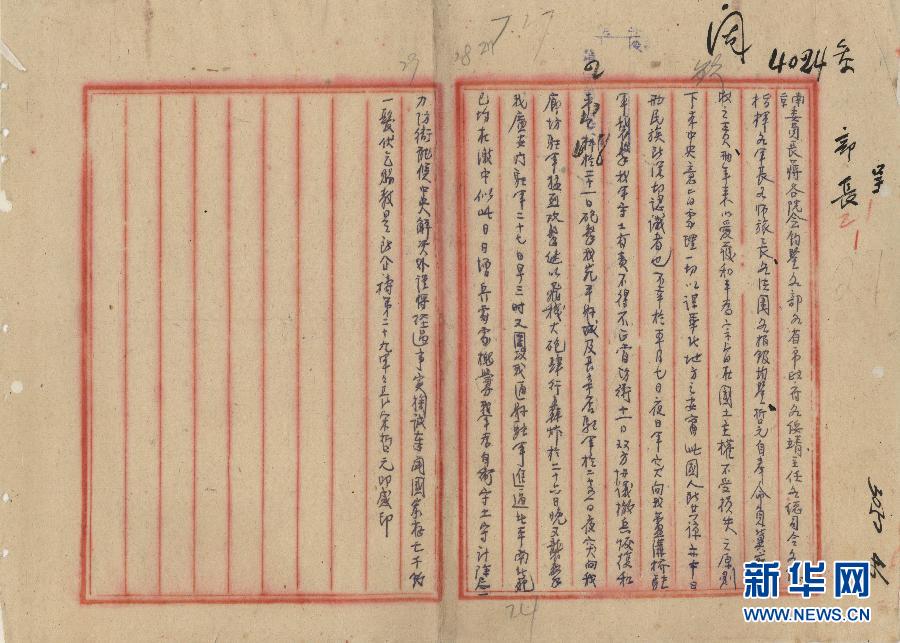 7.17
28 29
29
阅
4024
部長
呈
南京委員長蔣各院會鈞鑒各部各省市政府各綏靖主任各總司令各
指揮各軍長各師旅長各法團各報館均鑒哲元自奉命負冀
收之責 年来以愛護和平為宗旨在國土主權不受損失之原則
下本中央意旨處理一切以謀華北地方之安寧此國人所共諒亦中日
兩民族所深切認識者也不幸於本月七日夜日軍突向我蘆溝橋駐
軍襲擊我軍守土有責不得不正當防衛十一日双方協議撤兵恢復和
平 於二十一日砲擊我宛平縣城及長辛店駐軍於二十五日夜突向我
廊坊駐軍猛烈攻擊继以飛機大砲肆行轟炸於二十六日晚又襲擊
我廣安門駐軍二十七日早三時又圍攻我通縣駐軍進逼北平南北苑
已均在激戰中似此日日增兵處處挑釁我軍為自衛守土計除盡
力防衛聽候中央解决外謹將經過事實掬誠奉聞國家存亡千鈞
一髮伏乞賜教是所企禱第二十九軍軍長宋哲元叩感印
24
新华网
WWW.NEWS.CN